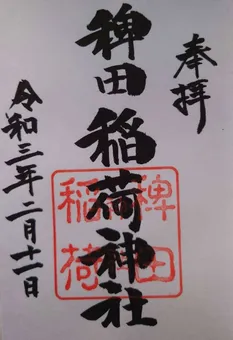 奉拝
稗田稲荷神社
稗田
稲荷
令和三年二月十一日